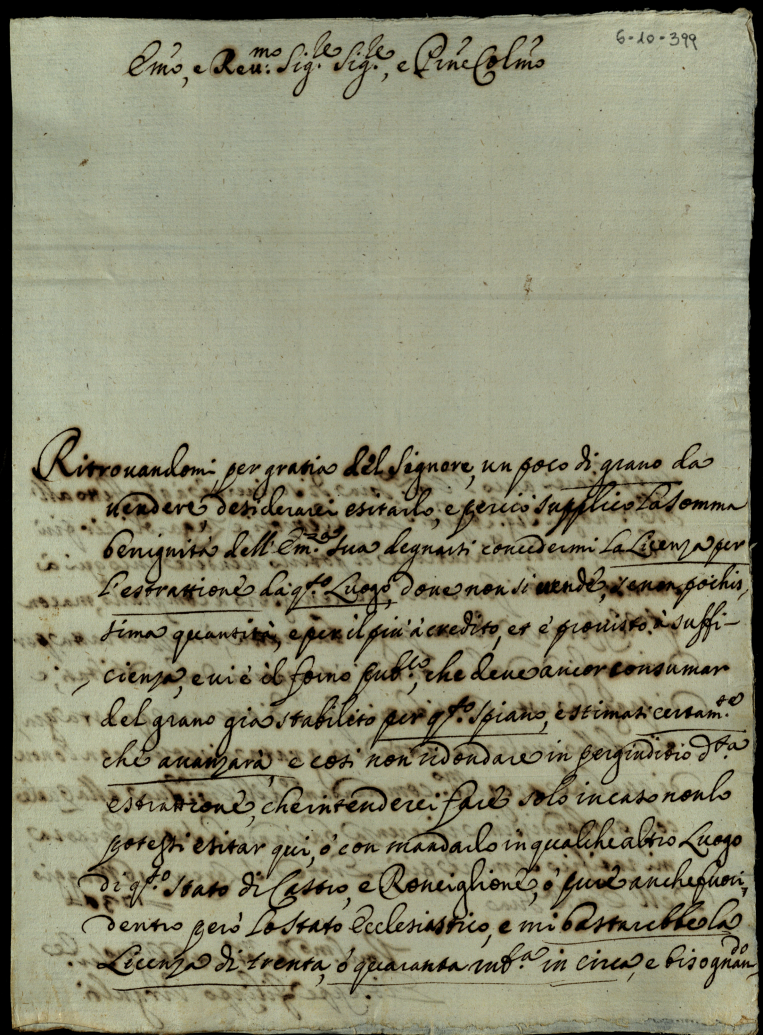 6-10-399
Emo, e Reu.mo Sig.re Sig.re, e Pne Colmo
Ritrouandomi, per gratia del Signore, un poco di grano da
uendere, desiderarei esitarlo, e perciò supplico la somma
benignità dell' Em.za sua degnarsi concedermi la Licenza per
l'estrattione da q.sto Luogo, doue non si uende, se non pochis,
sima quantità, e per il più à credito, et è prouisto à suffi-
cienza, e ui è il forno pub.co, che deue ancor consumar
del grano già stabilito per q.sto spiano, e stimasi certam.te
che auanzarà, e così non ridondare in pergiuditio d.ta
estrattione, che intenderei fare solo in caso non lo
potessi esitar qui, ò con mandarlo in qualche altro Luogo
di q.sto Stato di Castro, e Ronciglione, ò pure anche fuori,
dentro però lo Stato Ecclesiastico, e mi bastarebbe la
Licenza di trenta, ò quaranta rub.a in circa, e bisognan.do